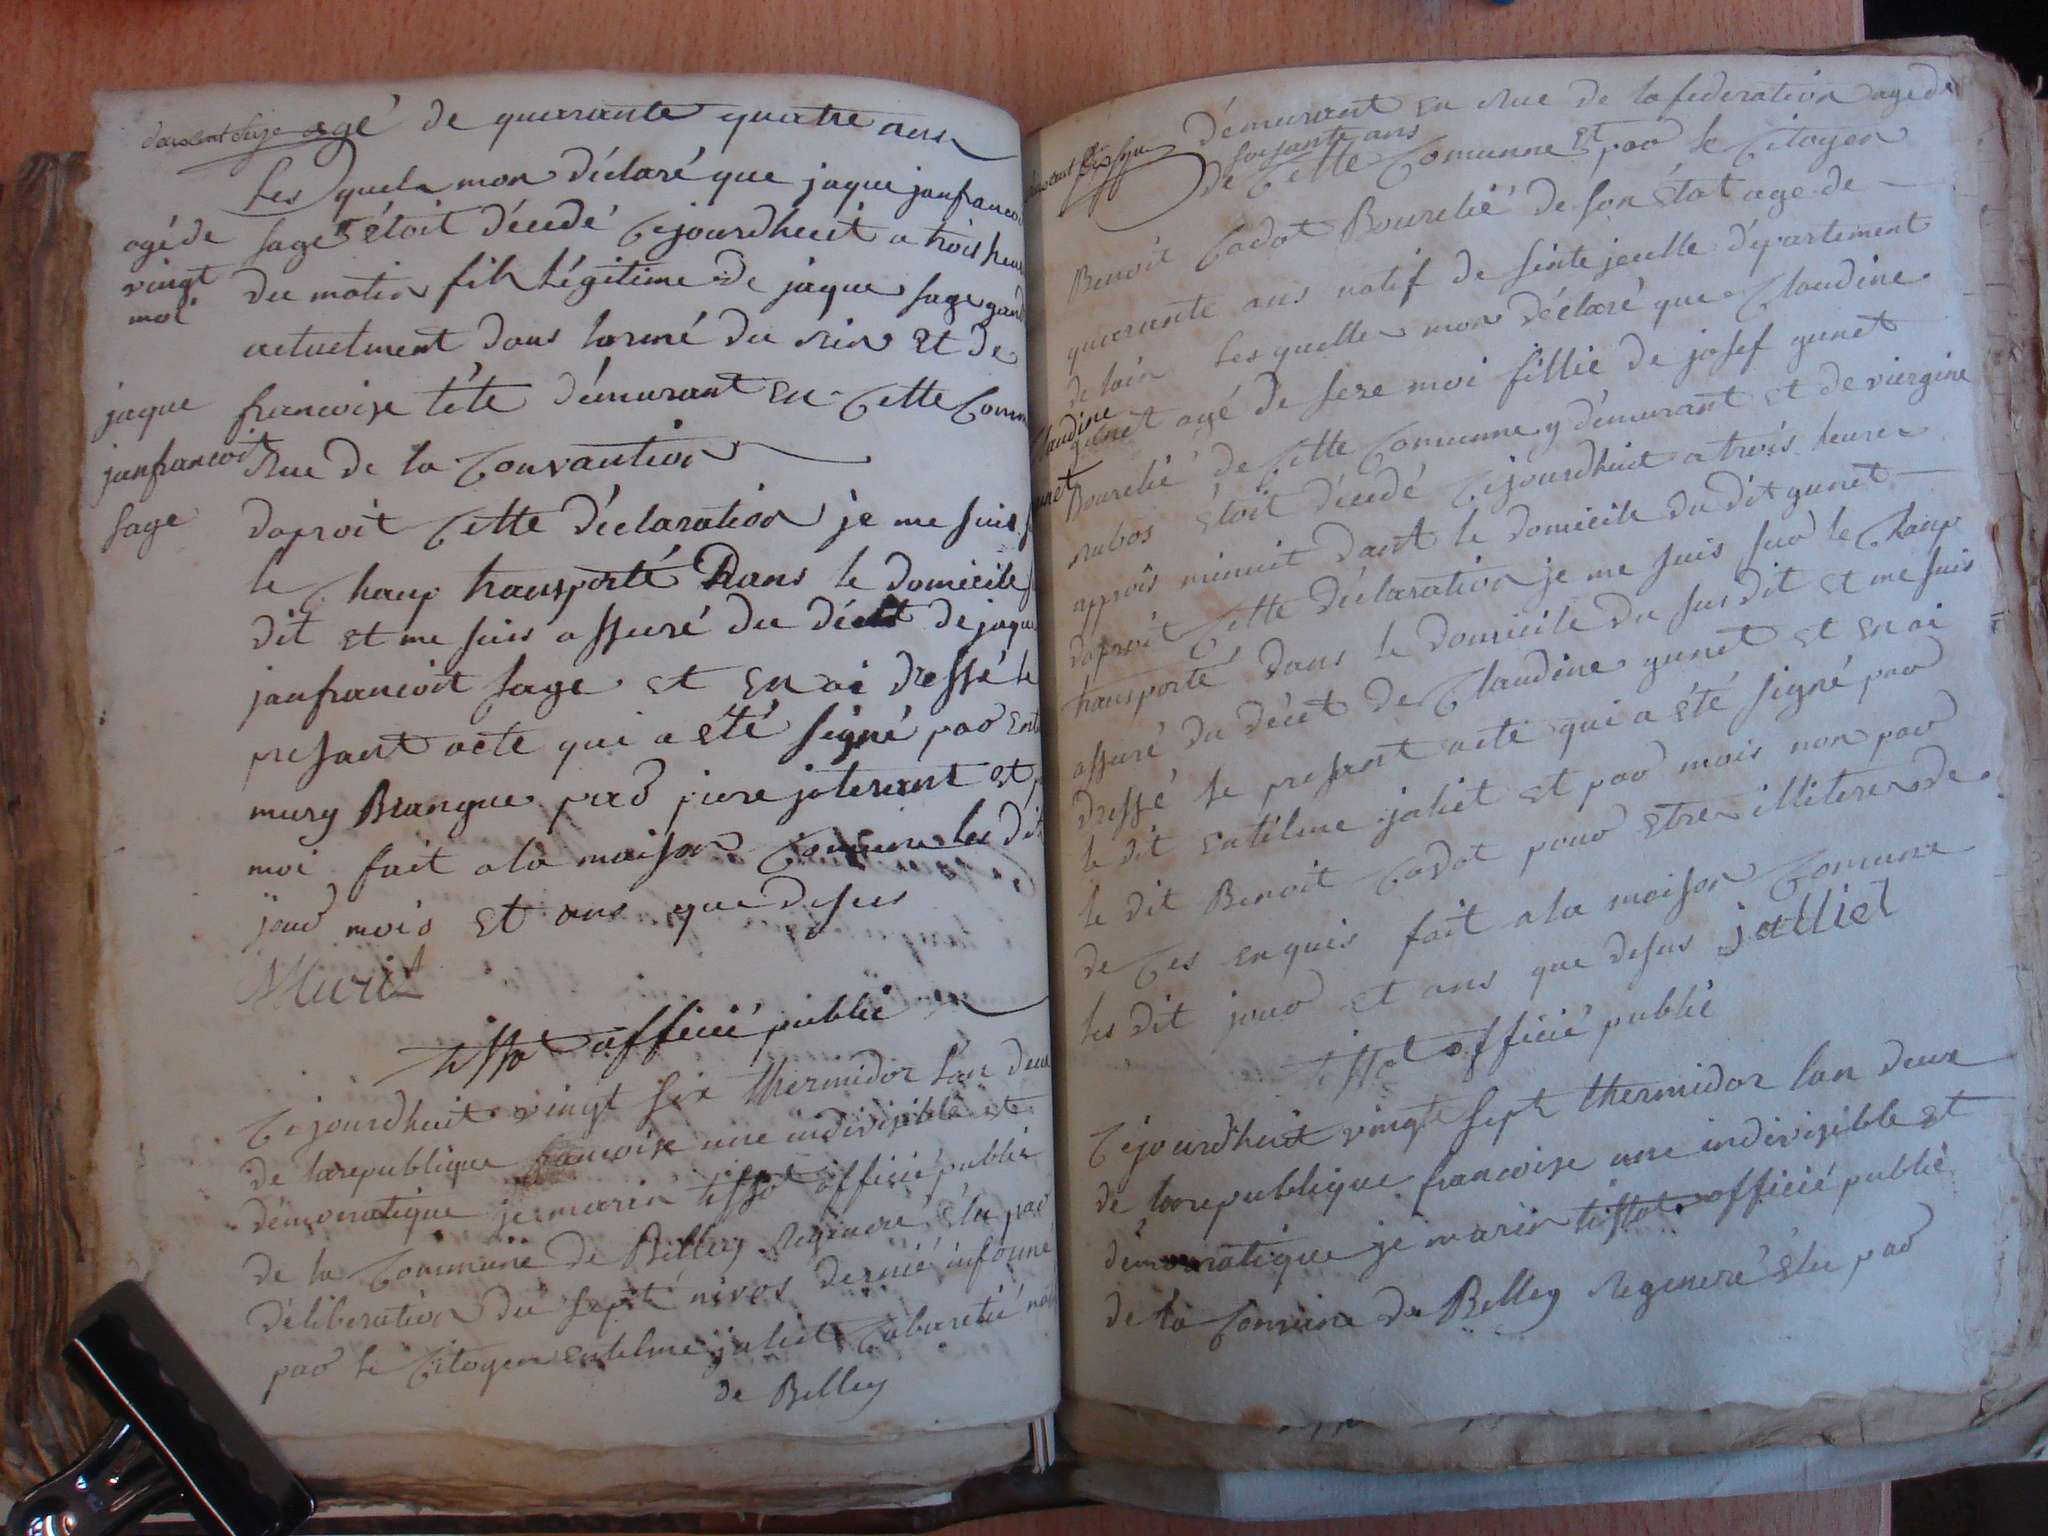 agé de quarante quatre ans
Les quels mon déclaré que jaque janfrancoi
agé de
vingt
moi
sage étoit décedé Cejourdheuit a trois heure
du matin fils Légitime de jaque sage
actuelment dans larmé du Rin et de
jaque
janfrancoit
sage
francoise tête démurant en Cette Comm
Rue de la Convantion
daproit Cette déclaration je me suis
le Chanp transporté Dans le domicile
dit et me suis assuré du décet de jaque
janfrancoit sage et en ai dressé le
presant acte qui a été signé par
mury Brangue par piere joterant et
moi fait a la maison Comune les dit
jour mois et ans que desus
Murit
tissot officié publié
Cejourdheuit vingt six thermidor lan deux
de larepublique francoise une indivisible et
démocratique je marin tissot officié publié
de la Commune de Belley Régénéré élu par
déliberation du sept nivos dernié informé
par le Citoyen entelme jaliet Cabaretié
de Belley
démurant en Rue de la federation age de
soisante ans
de Cette Comunne et par le Citoyen
Benoit Cadot Bourelié de son état age de
quarante ans natif de sinte jeulle département
de lain Les quelles mon déclaré que Claudine
Claudine
gunet
gunet agé de seze moi fillie de josef gunet
Bourelié de Cette Comunne y démurant et de viergine
rubos étoit décedé Cejourdheuit a trois heures
approis minuit dant le domicile du dit gunet
daproit Cette déclaration je me suis sur le Chanp
transporté dans le domicile du sus dit et me suis
assuré du décet de Claudine gunet et en ai
dressé le presant acte qui a été signé par
le dit entelme jaliet et par mois non par
le dit Benoit Cadot pour etre illiteres de
de Ces enquis fait a la maison Comune
les dit jour et ans que desus jalliet
tissot officié publié
Cejourdheuit vingt sept thermidor lan deux
de larepublique francoise une indivisible et
démocratique je marin tissot officié publié
de la Comune de Belley Regeneré élu par